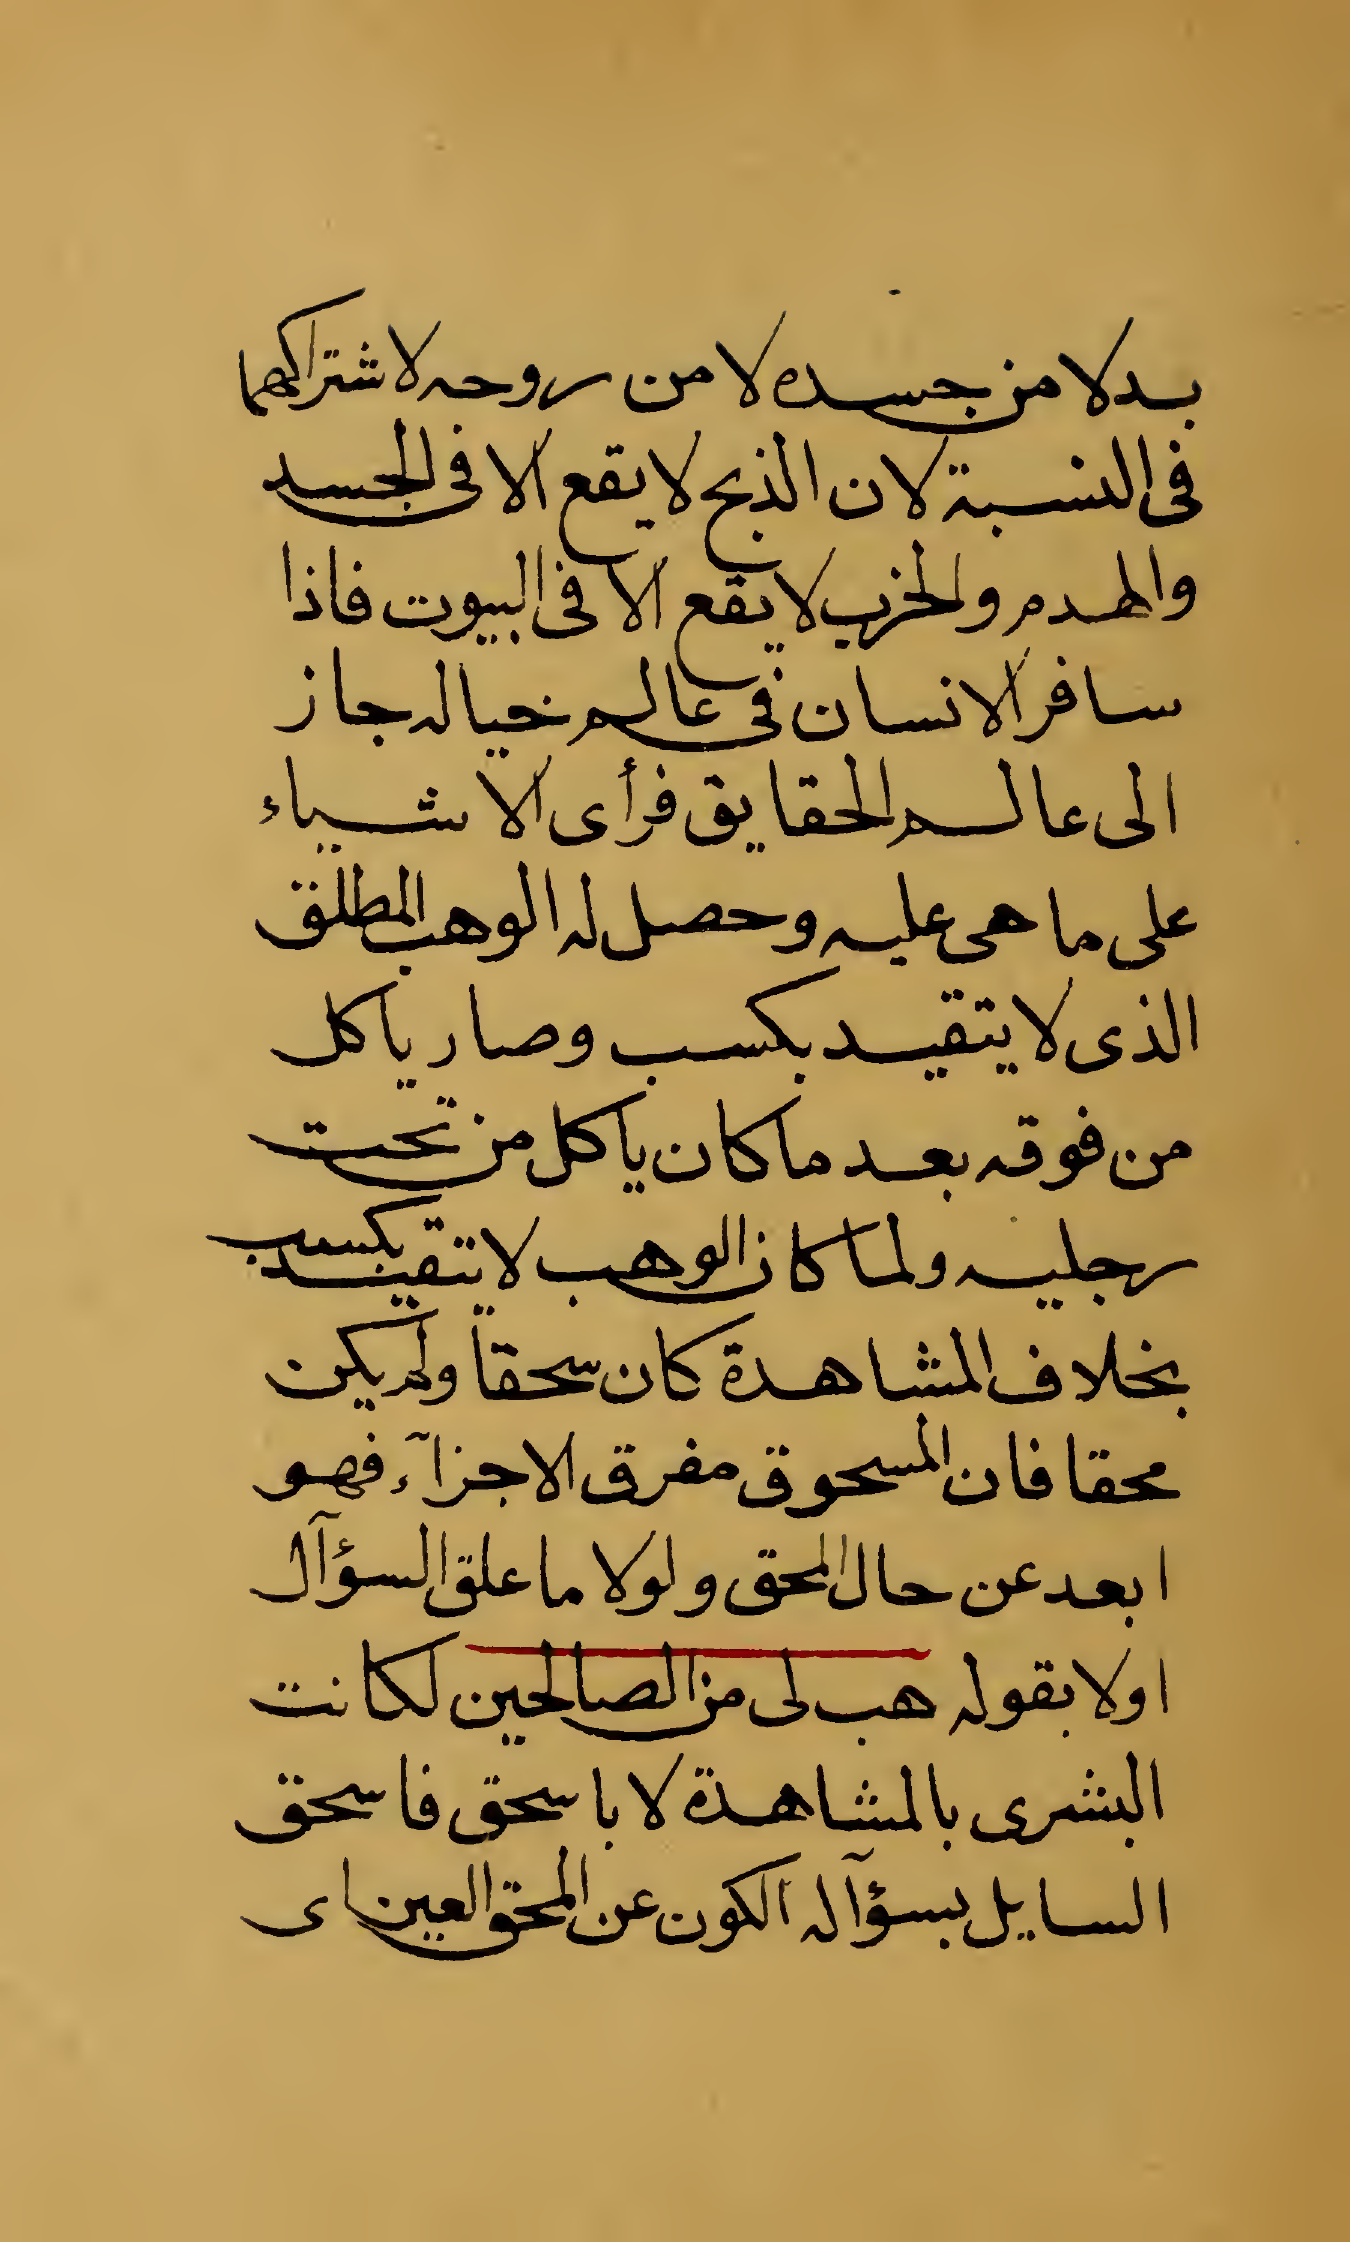 بدلا من جسده لا من روحه لاشتراكهما
فى النسبة لان الذبح لا يقع الا فى الجسد
والهدم والخرب لا يقع الا فى البيوت فاذا
سافر الانسان فى عالم خياله جاز
الى عالم الحقايق فرأى الاشياء
على ما هى عليه وحصل له الوهب المطلق
الذى لا يتقيد بكسب وصار ياكل
من فوقه بعد ما كان ياكل من تحت
رجليه ولما كان الوهب لا يتقيد بكسب
بخلاف المشاهدة كان سحقا ولم يكن
محقا فان المسحوق مفرق الاجزآء فهو
ابعد عن حال المحق ولولا ما علق السؤآل
اولا بقوله هب لى من الصالحين لكانت
البشرى بالمشاهدة لا باسحق فاسحق
السايل بسؤآله الكون عن المحق العين اى